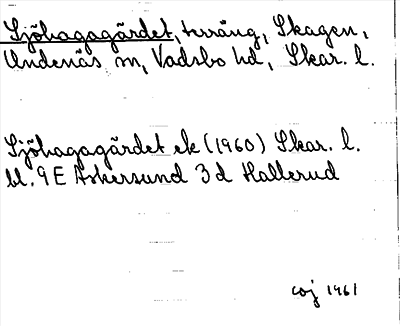 Sjöhagagärdet, terräng, Skagen,
Undenäs sn, Vadsbo hd, Skar. l.
Sjöhagagärdet ek (1960) Skar. l.
bl. 9E Askersund 3d Hallerud
coj 1961